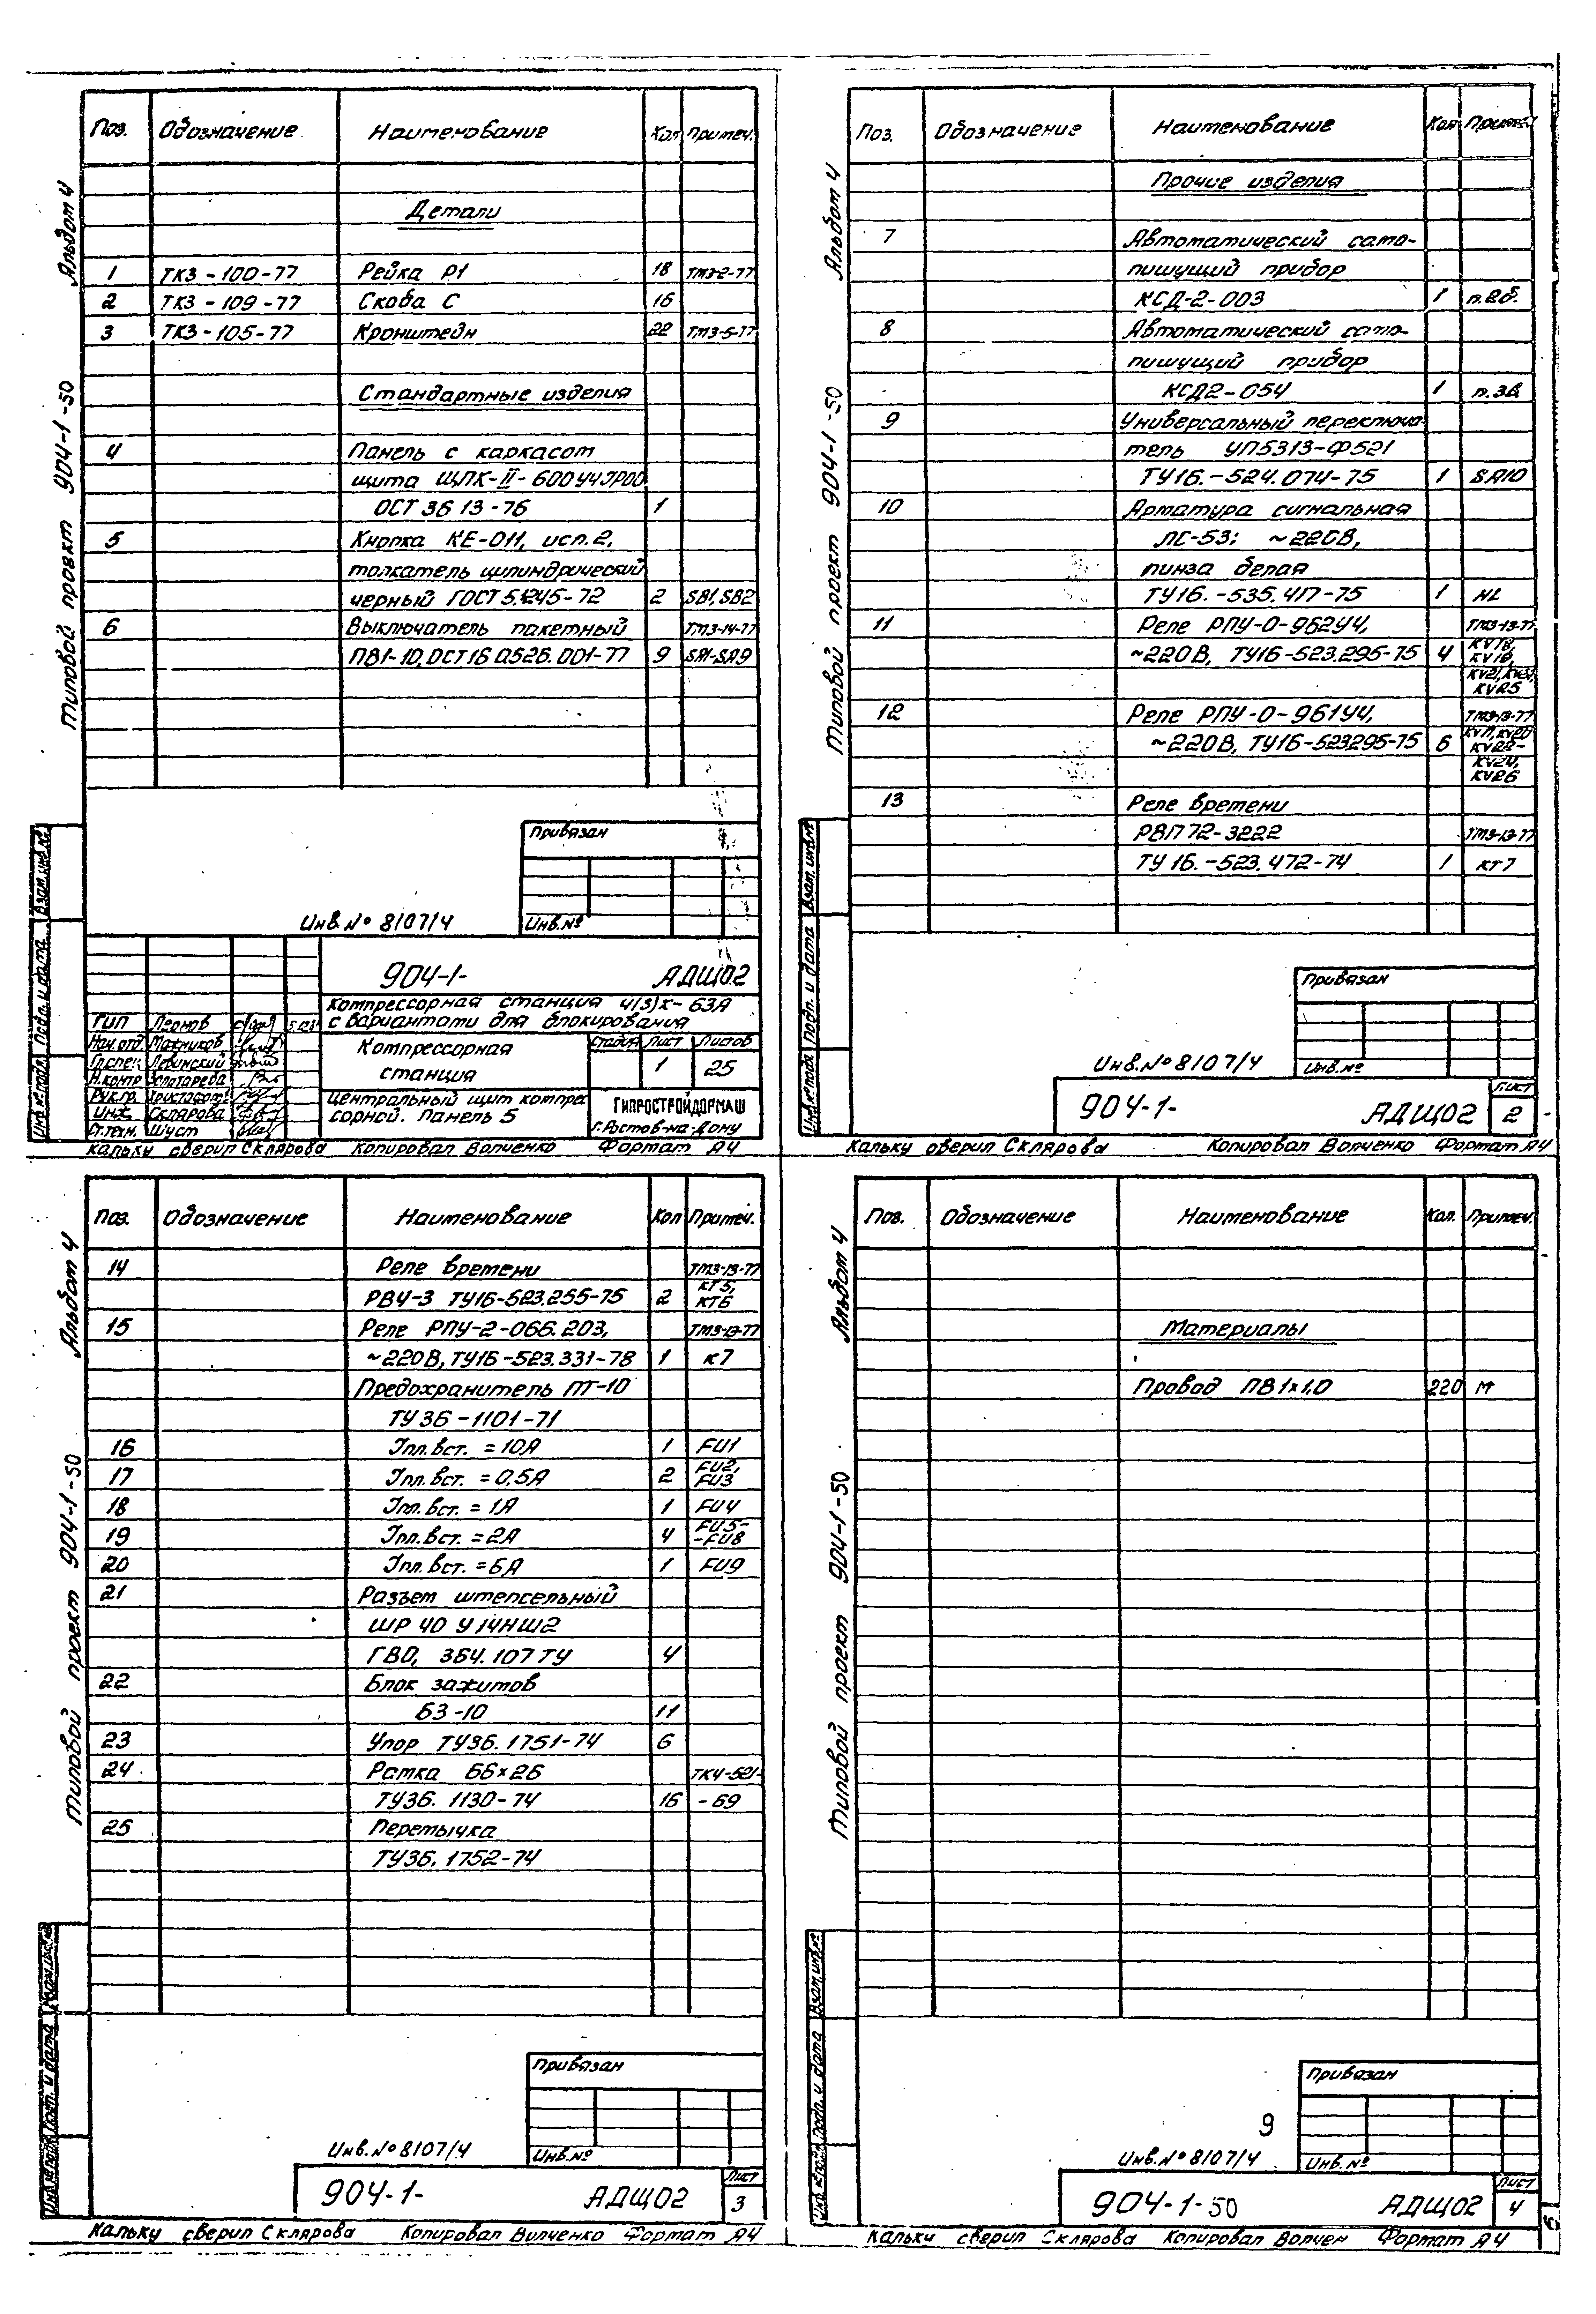 Альбом 4
Типовой проект 904-1-50
Поз. Обозначение Наименование Кол Примеч.
Детали
1 ТК3-100-77 Рейка Р1 18 ТМ3-2-77
2 ТК3-109-77 Скоба С 16
3 ТК3-105-77 Кронштейн 22 ТМ3-5-77
Стандартные изделия
4 Панель с каркасом
щита ЩПК-II-600У4 IР00
ОСТ 36 13-76 1
5 Кнопка КЕ-011, исп. 2,
толкатель цилиндрический
черный ГОСТ 5.1245-72 2 SB1, SB2
6 Выключатель пакетный ТМ3-14-77
ПВ1-10, ОСТ 16 0.526.001-77 9 SA1-SA9
Привязан
Инв. № 8107/4 Инв. №
Взам. инв. №
Подп. и дата
Инв. № подл.
904-1- АДЩ02
Компрессорная станция 4(3)К-63А
с вариантами для блокирования
ГИП Леонов
Нач. отд. Мажников
Гл. спец. Левинский
Н. контр
Рук. гр.
Инж. Склярова
Ст. техн. Шуст
Компрессорная
станция
Стадия Лист Листов
1 25
Центральный щит компрес
сорной. Панель 5
ГИПРОСТРОЙДОРМАШ
г. Ростов-на-Дону
Кальку сверил Склярова Копировал Волченко Формат А4
Альбом 4
Типовой проект 904-1-50
Поз. Обозначение Наименование Кол Примеч.
Прочие изделия
7 Автоматический само-
пишущий прибор
КСД-2-003 1 п. 2б.
8 Автоматический само-
пишущий прибор
КСД2-054 1 п. 3в
9 Универсальный переключа-
тель УП5313-Ф521
ТУ16.-524.074-75 1 SA10
10 Арматура сигнальная
ЛС-53; ~220В,
линза белая
ТУ16.-535.417-75 1 HL
11 Реле РПУ-0-962У4, ТМ3-13-77
~220В, ТУ16-523.295-75 4 KV18,
KV19,
KV21,
KV25
12 Реле РПУ-0-961У4, ТМ3-13-77
~220В, ТУ16-523295-75 6 KV17, KV20
KV22-
KV24,
KV26
13 Реле времени
РВП72-3222 ТМ3-13-77
ТУ 16.-523.472-74 1 КТ7
Привязан
Взам. инв. №
Подп. и дата
Инв. № подл.
Инв. № 8107/4 Инв. №
904-1- АДЩ02 Лист 2
Кальку сверил Склярова Копировал Волченко Формат А4
Альбом 4
Типовой проект 904-1-50
Поз. Обозначение Наименование Кол Примеч.
14 Реле времени ТМ3-13-77
РВ4-3 ТУ16-523.255-75 2 КТ5,
КТ6
15 Реле РПУ-2-066.203, ТМ3-13-77
~220В, ТУ16-523.331-78 1 К7
Предохранитель ПТ-10
ТУ 36-1101-71
16 Iпл. вст. = 10А 1 FU1
17 Iпл. вст. = 0,5А 2 FU2,
FU3
18 Iпл. вст. = 1А 1 FU4
19 Iпл. вст. = 2А 4 FU5-
-FU8
20 Iпл. вст. = 6А 1 FU9
21 Разъем штепсельный
ШР 40 У 14НШ2
ГВ0, 364.107 ТУ 4
22 Блок зажимов
БЗ-10 11
23 Упор ТУ36.1751-74 6
24 Рамка 66×26 ТК4-521-
ТУ36.1130-74 16 -69
25 Перемычка
ТУ36.1752-74
Привязан
Взам. инв. №
Подп. и дата
Инв. № подл.
Инв. № 8107/4 Инв. №
904-1- АДЩ02 Лист 3
Кальку сверил Склярова Копировал Волченко Формат А4
Альбом 4
Типовой проект 904-1-50
Поз. Обозначение Наименование Кол. Примеч.
Материалы
Провод ПВ 1×1,0 220 м
Привязан
Взам. инв. №
Подп. и дата
Инв. № подл.
9
Инв. № 8107/4 Инв. №
904-1-50 АДЩ02 Лист 4
Кальку сверил Склярова Копировал Волчен Формат А4